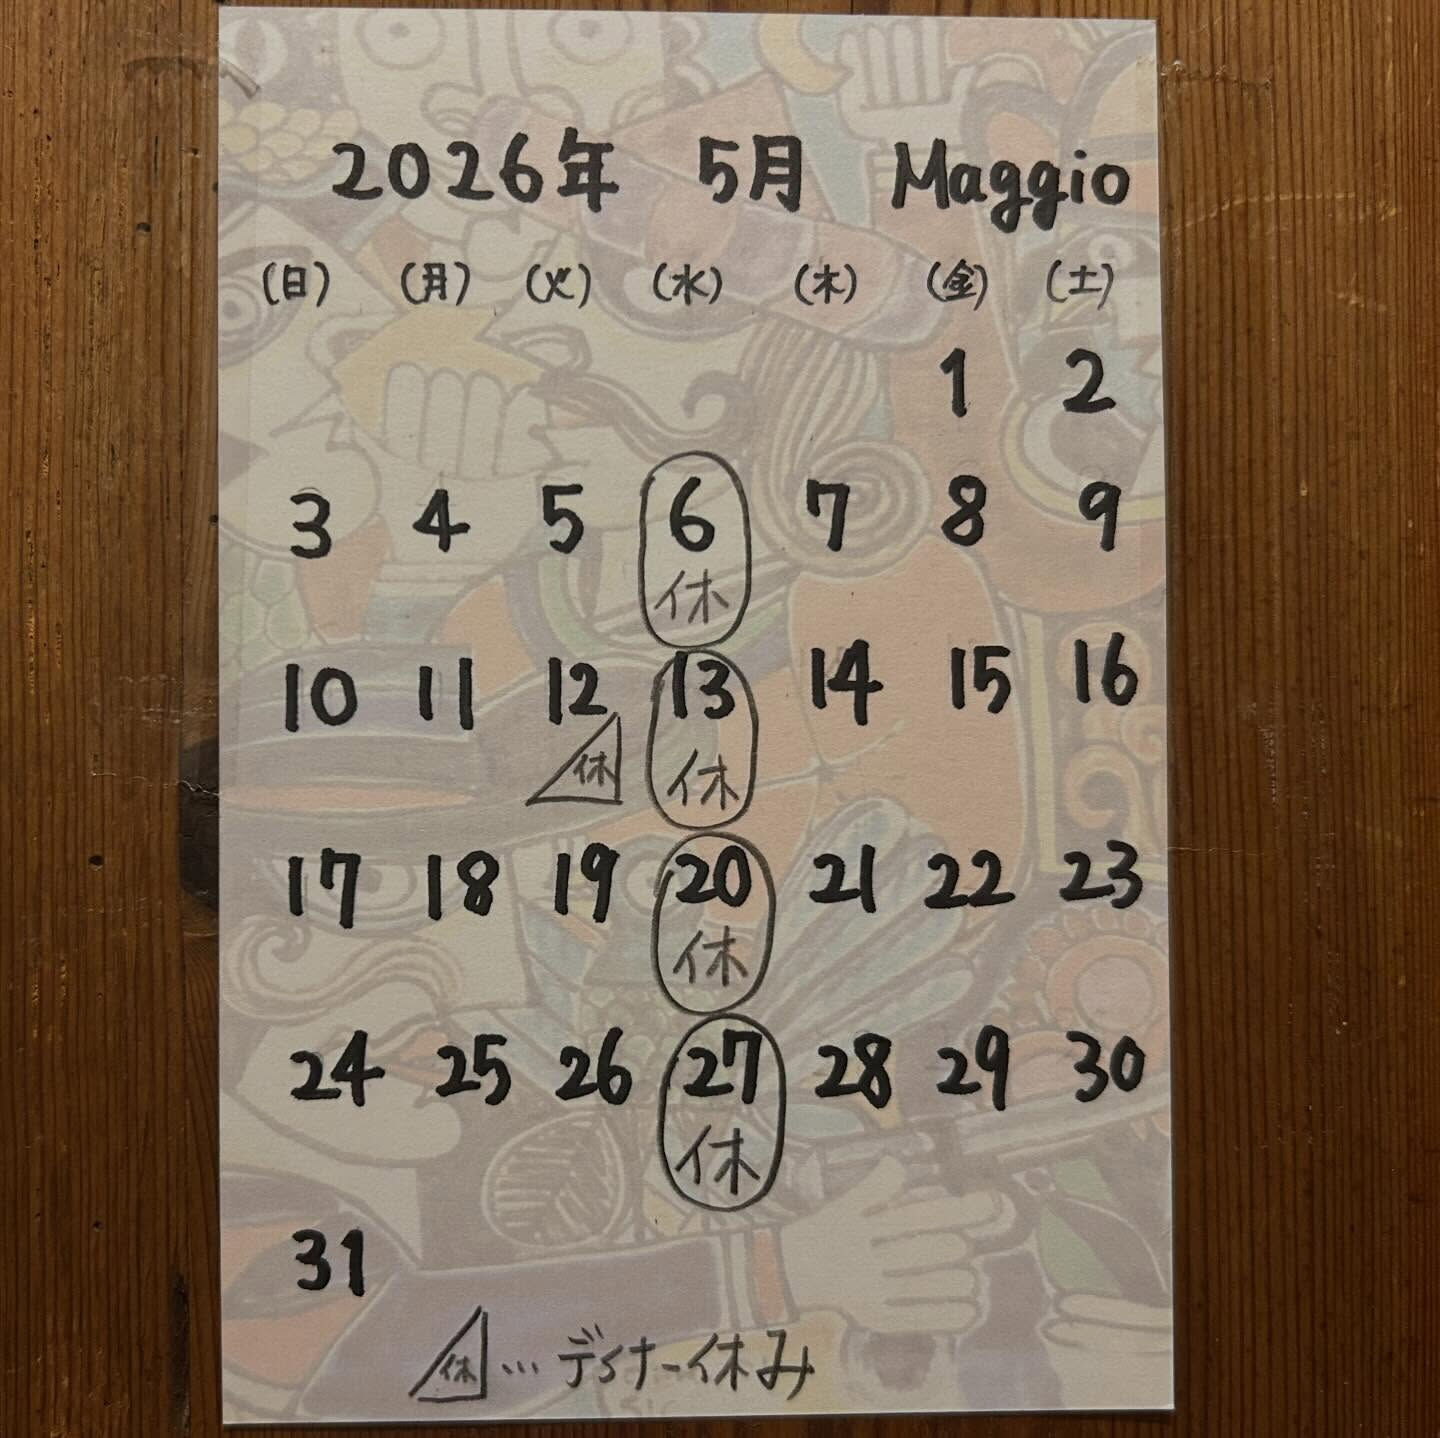 2026年 5月 Maggio
(日) (月) (火) (水) (木) (金) (土)
1 2
3 4 5 6 7 8 9
休
10 11 12 13 14 15 16
休 休
17 18 19 20 21 22 23
休
24 25 26 27 28 29 30
休
31
休…ディナー休み